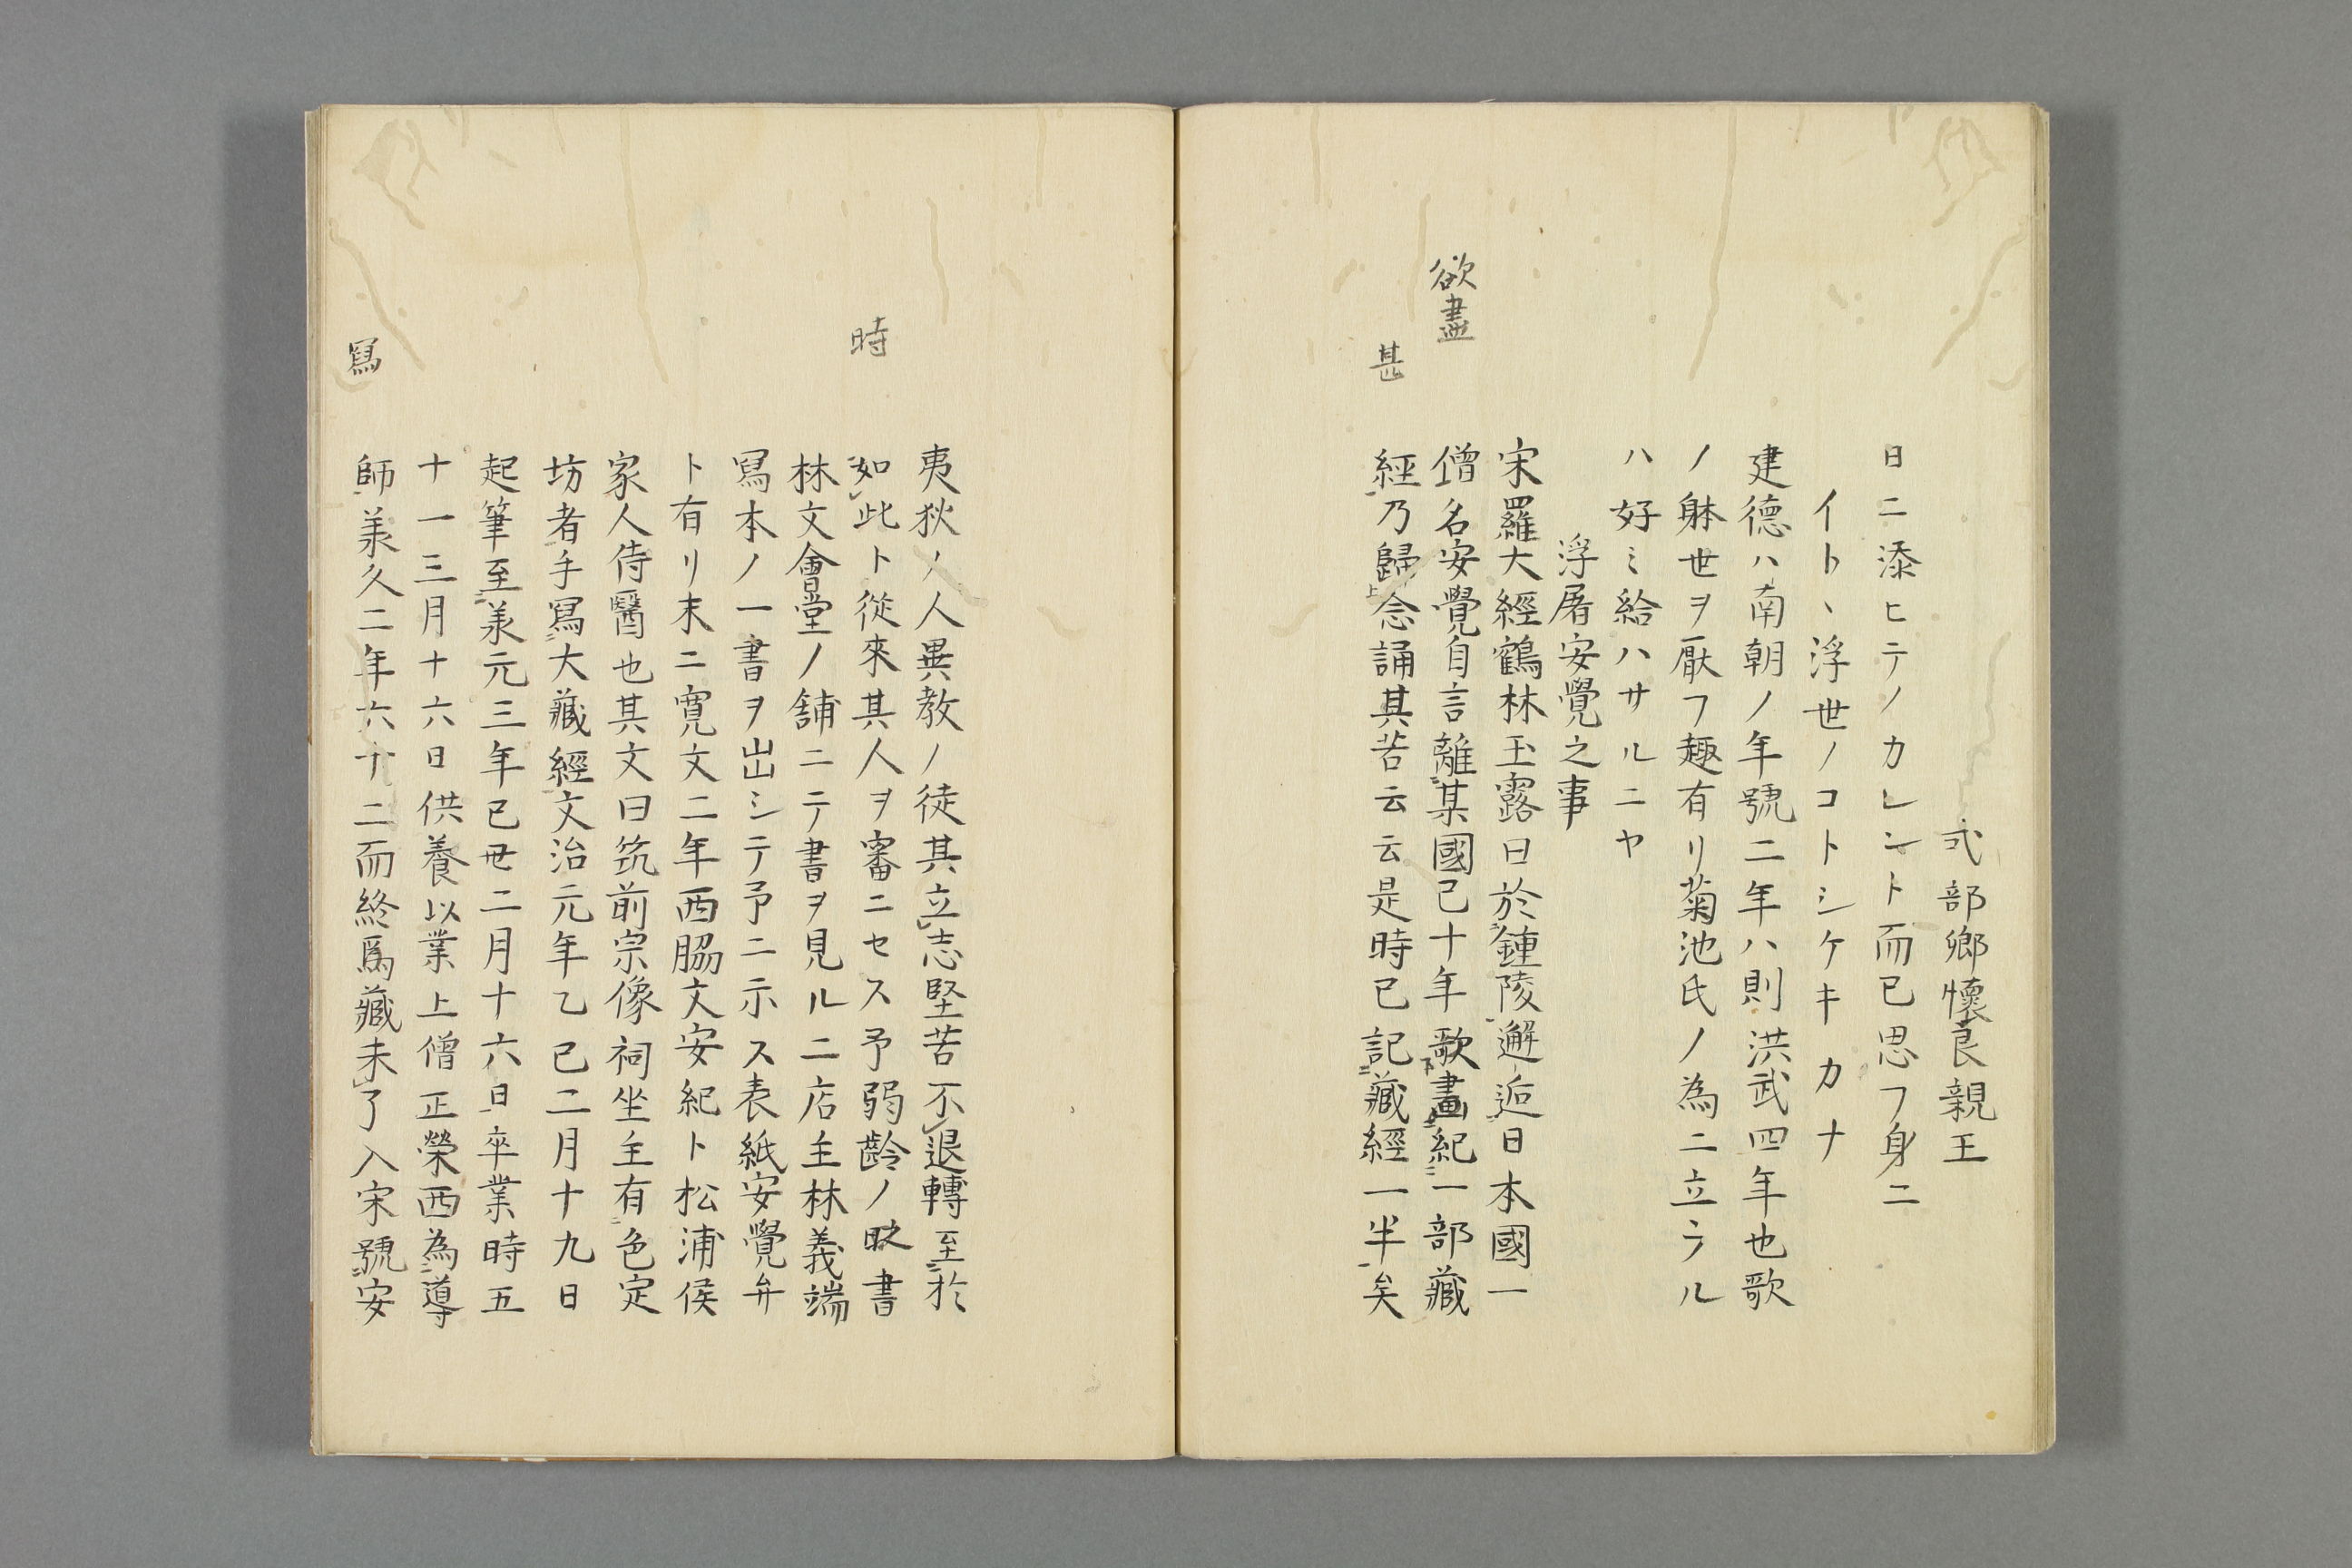 式部郷懷良親王
日ニ添ヒテノカレント而已思フ身ニ
イトヽ浮世ノコトシケキカナ
建德ハ南朝ノ年號二年ハ則洪武四年也歌
ノ躰世ヲ厭フ趣有リ菊池氏ノ為ニ立ラル
ハ好ミ給ハサルニヤ
浮屠安覺之事
宋羅大經鶴林玉露曰於鍾陵邂逅日本國一
欲盡
僧名安覺自言離某國已十年歌畫紀一部藏
甚
經乃歸念誦其苦云云是時已記藏經一半矣
夷狄ノ人異教ノ徒其立志堅苦不退轉至於
時
如此ト從來其人ヲ審ニセス予弱齡ノ書
林文會堂ノ舗ニテ書ヲ見ル二店主林義端
冩本ノ一書ヲ出シテ予ニ示ス表紙安覺弁
ト有リ末ニ寛文二年西脇文安紀ト松浦侯
家人侍醫也其文曰筑前宗像祠坐主有色定
坊者手冩大藏經文治元年乙已二月十九日
起筆至羕元三年已丗二月十六日卒業時五
十一三月十六日供養以業上僧正榮西為導
冩
師羕久二年六十二而終爲藏未了入宋號安